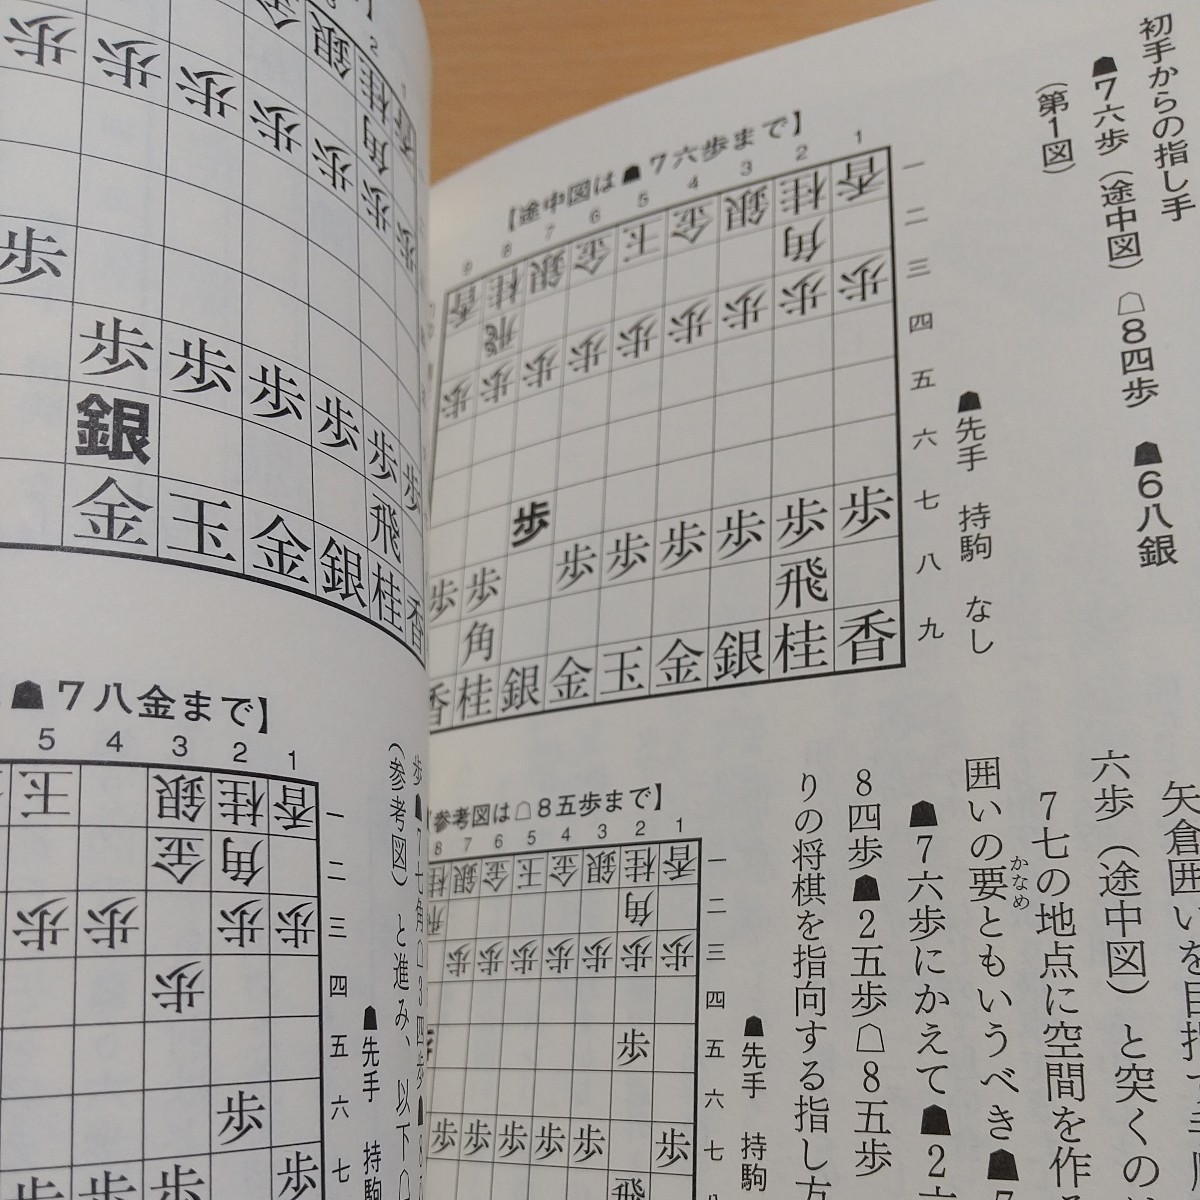 初手からの指し手
☗7六歩(途中図) ☖8四歩 ☗6八銀
(第1図)
【途中図は☗7六歩まで】
9 8 7 6 5 4 3 2 1
香 桂 銀 金 玉 金 銀 桂 香 一
飛 角 二
歩 歩 歩 歩 歩 歩 歩 歩 歩 三
四
五
歩 六
歩 歩 歩 歩 歩 歩 歩 歩 七
角 飛 八
香 桂 銀 金 玉 金 銀 桂 香 九
☗先手 持駒 なし
矢倉囲いを目指す
六歩(途中図)と突くの
7七の地点に空間を作
囲いの要ともいうべき☗7
かなめ
☗7六歩にかえて☗2六
8四歩☗2五歩☖8五歩
りの将棋を指向する指し方
参考図は☖8五歩まで】
8 7 6 5 4 3 2 1
桂 銀 金 玉 金 銀 桂 香 一
飛 角 二
歩 歩 歩 歩 歩 歩 歩 三
四
歩 歩 五
六
歩 歩 歩 歩 歩 歩 七
飛
☗先手 持駒
2
金 銀 桂
角 香
歩 歩 歩 歩 歩 歩 歩
歩
歩 歩 歩 歩 歩 歩
銀 飛
金 玉 金 銀 桂 香
歩☗7七角☖3四歩☗
(参考図)と進み、以下☖
☗7八金まで】
5 4 3 2 1
王 銀 桂 香 一
金 角 二
歩 歩 歩 歩 三
歩 四
五
歩 六
歩 歩 歩 歩 七
☗先手 持駒